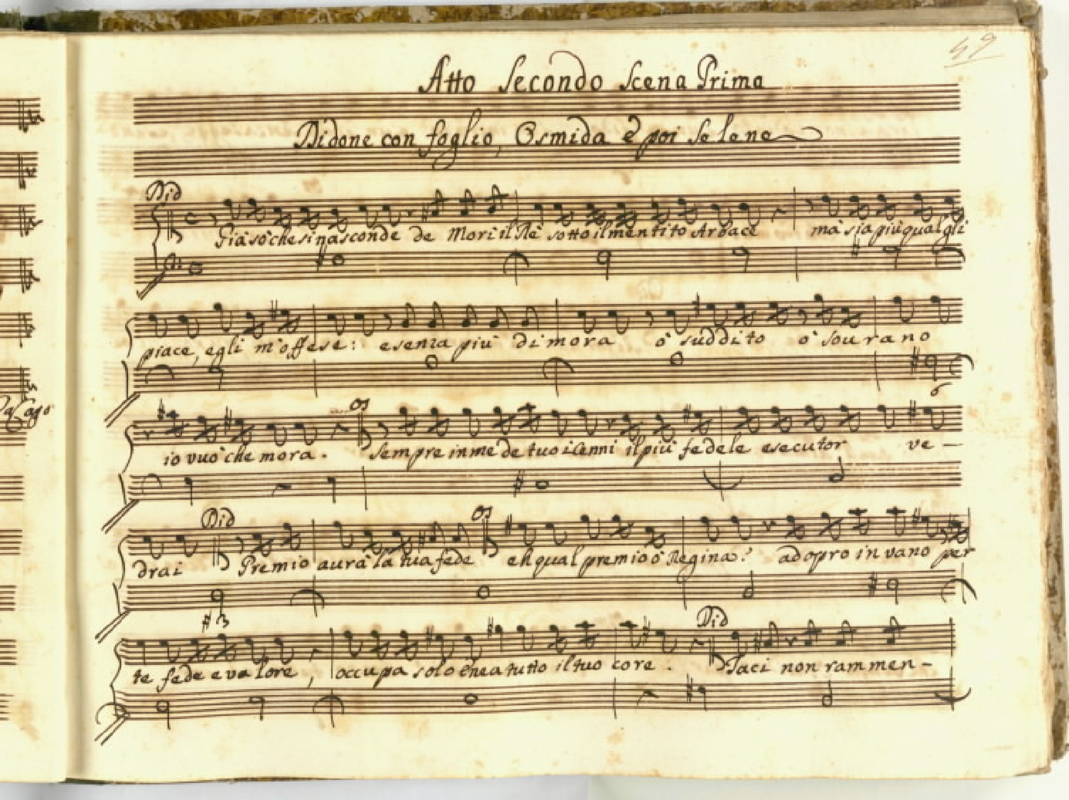 49
Atto Secondo Scena Prima
Didone con foglio, Osmida e poi Selene
Did
Già sò che si nasconde de Mori il Rè sotto il mentito Arbace mà sia più qual gli
piace, egli m'offese: e senza più dimora ò suddito ò sourano
6
Os
io vuò che mora. Sempre in me de tuoi cenni il più fedele esecutor ve-
Did Os
drai Premio aurà la tua fede eh qual premio ò Regina? adopro in vano per
3
Did
te fede e valore, occupa solo Enea tutto il tuo core. Taci non rammen-